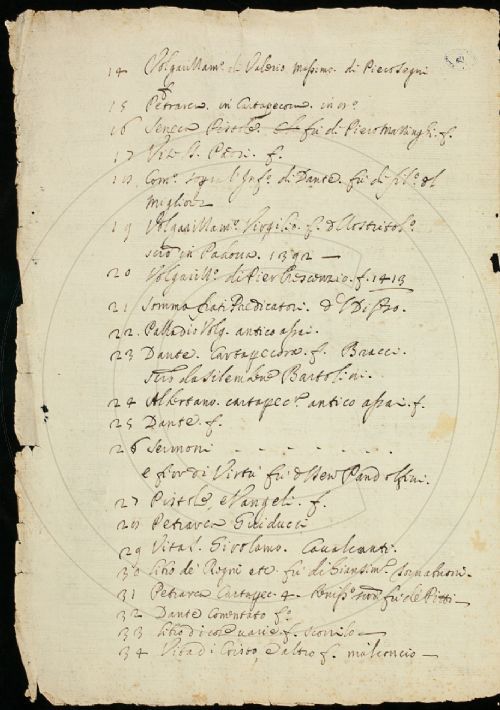 14 Volgarizzam.º di Valerio Massimo. di Piero Segni
15 Petrarca. in Cartapecora. in
16 Seneca Pistole. fu di Piero Martinghi. f.
17 Vite S. Padri. f.
18 Com.º sopra l'Inf.º di Dante. fu di fil.º del
Migliore
19 Volgarizzam.º Virgilio. f.
in Padova. 1392 —
20 Volgarizz.º di Pier Crescenzio. f. 1413
21 Somma frati Predicatori.
22. Palladio Volg. antico assai.
23 Dante. Cartapecora. f. Bracci.
Bartolini.
24 Albertano. cartapec.ª antico assai. f.
25 Dante. f.
26 Sermoni . . . . . . .
e fior di Virtù fu Pandolfini.
27 Pistole, e Vangeli. f.
28 Petrarca Guiducci
29 Vita S. Girolamo. Cavalcanti.
30 libro de' Regni etc. fu di
31 Petrarca Cartapec. 4. fu de' Pitti —
32 Dante comentato f.º
33 libro di cose varie f. —
34 Vita di Cristo, e altro f. malconcio —